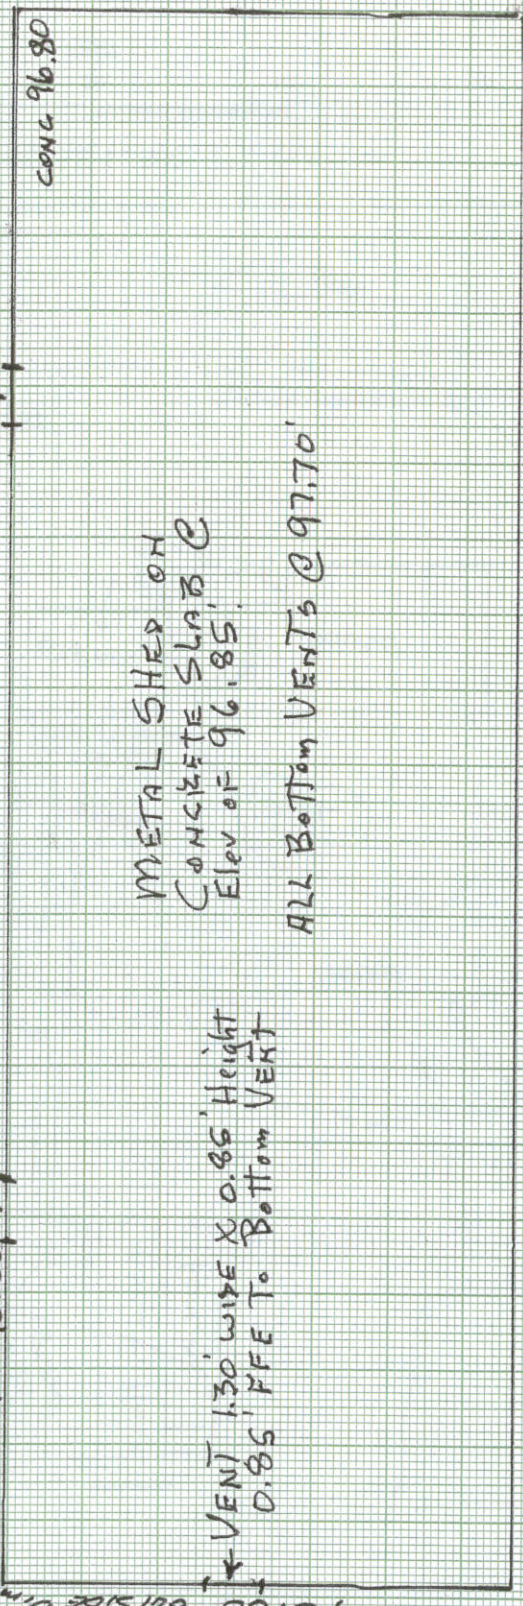 CONC 96.80
METAL SHED ON
CONCRETE SLAB @
Elev OF 96.85'
ALL BOTTOM VENTS @ 97.70'
VENT 1.30' WIDE X 0.85' Height
0.85' FFE To Bottom VENT